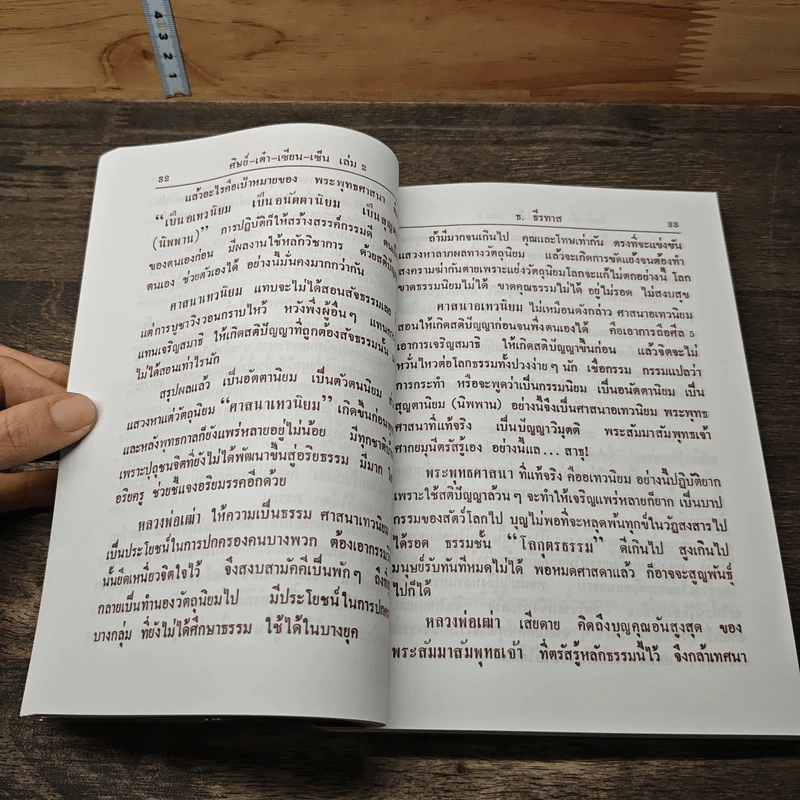 4
3
2
1
32
ศิษย์-เต๋า-เซียน-เซ็น เล่ม 2
แล้วอะไรคือเป้าหมายของ พระพุทธศาสนา
“เป็นอเทวนิยม เป็นอนัตตานิยม เป็นสุญต
(นิพพาน)” การปฏิบัติก็ให้สร้างสรรค์กรรมดี ตนเ
ของตนเองก่อน มีผลงานใช้หลักวิชาการ ด้วยสติปัญ
ตนเอง ช่วยตัวเองได้ อย่างนี้มั่นคงมากกว่ากัน
ศาสนาเทวนิยม แทบจะไม่ได้สอนสัจธรรมเลย
แต่การบูชาวิงวอนกราบไหว้ หวังพึ่งผู้อื่นๆ แทนก
แทนเจริญสมาธิ ให้เกิดสติปัญญาที่ถูกต้องสัจธรรมนั้น
ไม่ได้สอนเท่าไรนัก
สรุปผลแล้ว เป็นอัตตานิยม เป็นตัวตนนิยม
แสวงหาแต่วัตถุนิยม “ศาสนาเทวนิยม” เกิดขึ้นก่อนพ
และหลังพุทธกาลก็ยังแพร่หลายอยู่ไม่น้อย มีทุกชาติ
เพราะปุถุชนจิตที่ยังไม่ได้พัฒนาขึ้นสู่อริยธรรม มีมาก
อริยครู ช่วยชี้แจงอริยมรรคอีกด้วย
หลวงพ่อเฒ่า ให้ความเป็นธรรม ศาสนาเทวนิยม
เป็นประโยชน์ในการปกครองคนบางพวก ต้องเอากรรม
นั้นยึดเหนี่ยวจิตใจไว้ จึงสงบสามัคคีเป็นพักๆ ถึงที่
กลายเป็นทำนองวัตถุนิยมไป มีประโยชน์ในการปก
บางกลุ่ม ที่ยังไม่ได้ศึกษาธรรม ใช้ได้ในบางยุค
ธ. ธีรทาส
33
ถ้ามีมากจนเกินไป คุณและโทษเท่ากัน ตรงที่จะแข่งขัน
แสวงหาลาภผลทางวัตถุนิยม แล้วจะเกิดการขัดแย้งจนต้องทำ
สงครามฆ่ากันตายเพราะแย่งวัตถุนิยมโลกจะแก้ไม่ตกอย่างนี้ โลก
ขาดธรรมนิยมไม่ได้ ขาดคุณธรรมไม่ได้ อยู่ไม่รอด ไม่สงบสุข
ศาสนาอเทวนิยม ไม่เหมือนดังกล่าว ศาสนาอเทวนิยม
สอนให้เกิดสติปัญญาก่อนจนพึ่งตนเองได้ คือเอาการถือศีล 5
เอาการเจริญสมาธิ ให้เกิดสติปัญญาขึ้นก่อน แล้วจิตจะไม่
หวั่นไหวต่อโลกธรรมทั้งปวงง่ายๆ นัก เชื่อกรรม กรรมแปลว่า
การกระทำ หรือจะพูดว่าเป็นกรรมนิยม เป็นอนัตตานิยม เป็น
สุญตานิยม (นิพพาน) อย่างนี้จึงเป็นศาสนาอเทวนิยม พระพุทธ
ศาสนาที่แท้จริง เป็นปัญญาวิมุตติ พระสัมมาสัมพุทธเจ้า
ศากยมุนีตรัสรู้เอง อย่างนี้แล... สาธุ!
พระพุทธศาสนา ที่แท้จริง คืออเทวนิยม อย่างนี้ปฏิบัติยาก
เพราะใช้สติปัญญาล้วนๆ จะทำให้เจริญแพร่หลายก็ยาก เป็นบาป
กรรมของสัตว์โลกไป บุญไม่พอที่จะหลุดพ้นทุกข์ในวัฏสงสารไป
ได้รอด ธรรมชั้น “โลกุตรธรรม” ดีเกินไป สูงเกินไป
มนุษย์รับทันทีหมดไม่ได้ พอหมดศาสดาแล้ว ก็อาจจะสูญพันธุ์
ไปก็ได้
หลวงพ่อเฒ่า เสียดาย คิดถึงบุญคุณอันสูงสุด ของ
พระสัมมาสัมพุทธเจ้า ที่ตรัสรู้หลักธรรมนี้ไว้ จึงกล้าเทศนา